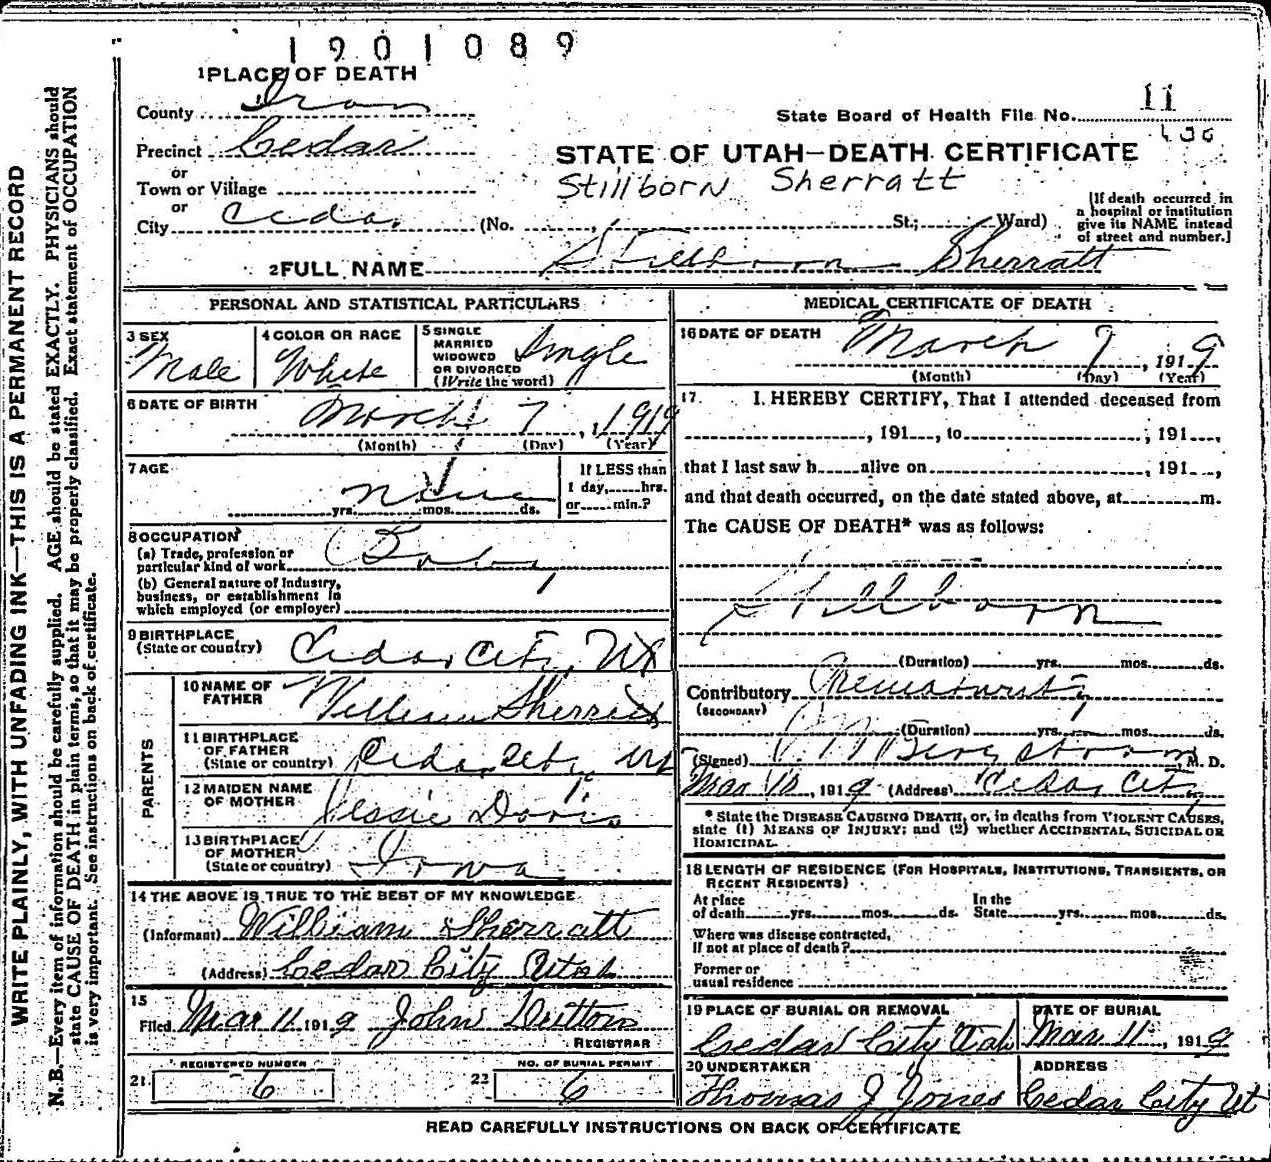 1901089
1 PLACE OF DEATH
County Iron
State Board of Health File No. 11
Precinct Cedar
or
STATE OF UTAH—DEATH CERTIFICATE
Town or Village
Stillborn Sherratt
or
City Cedar (No. St.; Ward)
[If death occurred in
a hospital or institution
give its NAME instead
of street and number.]
2 FULL NAME Stillborn Sherratt
PERSONAL AND STATISTICAL PARTICULARS
3 SEX
Male
4 COLOR OR RACE
White
5 SINGLE
MARRIED
WIDOWED
OR DIVORCED
(Write the word)
Single
6 DATE OF BIRTH
March 7, 1919
(Month) (Day) (Year)
7 AGE
None
yrs. mos. ds.
If LESS than
1 day, hrs.
or min.?
8 OCCUPATION
(a) Trade, profession or
particular kind of work Baby
(b) General nature of Industry,
business, or establishment in
which employed (or employer)
9 BIRTHPLACE
(State or country) Cedar City, Ut
PARENTS
10 NAME OF
FATHER William Sherratt
11 BIRTHPLACE
OF FATHER
(State or country) Cedar City, Ut
12 MAIDEN NAME
OF MOTHER Jessie Davis
13 BIRTHPLACE
OF MOTHER
(State or country) Iowa
14 THE ABOVE IS TRUE TO THE BEST OF MY KNOWLEDGE
(Informant) William Sherratt
(Address) Cedar City Utah
15
Filed Mar 11 1919 John Dutton
REGISTRAR
REGISTERED NUMBER
21. 6
NO. OF BURIAL PERMIT
22 6
MEDICAL CERTIFICATE OF DEATH
16 DATE OF DEATH
March 7, 1919
(Month) (Day) (Year)
17. I HEREBY CERTIFY, That I attended deceased from
, 191 , to ; 191 ,
that I last saw h alive on , 191 ,
and that death occurred, on the date stated above, at m.
The CAUSE OF DEATH* was as follows:
Stillborn
(Duration) yrs. mos. ds.
Contributory Prematurity
(SECONDARY)
(Duration) yrs. mos. ds.
(Signed) Bergstrom, M. D.
Mar 10, 1919 (Address) Cedar City
* State the DISEASE CAUSING DEATH, or, in deaths from VIOLENT CAUSES,
state (1) MEANS OF INJURY; and (2) whether ACCIDENTAL, SUICIDAL OR
HOMICIDAL.
18 LENGTH OF RESIDENCE (FOR HOSPITALS, INSTITUTIONS, TRANSIENTS, OR
RECENT RESIDENTS)
At place
of death yrs. mos. ds.
In the
State yrs. mos. ds.
Where was disease contracted,
if not at place of death?
Former or
usual residence
19 PLACE OF BURIAL OR REMOVAL
Cedar City Utah
DATE OF BURIAL
Mar 11, 1919
20 UNDERTAKER
Thomas J Jones
ADDRESS
Cedar City Ut
READ CAREFULLY INSTRUCTIONS ON BACK OF CERTIFICATE
WRITE PLAINLY, WITH UNFADING INK—THIS IS A PERMANENT RECORD
N. B.—Every item of information should be carefully supplied. AGE should be stated EXACTLY. PHYSICIANS should
state CAUSE OF DEATH in plain terms, so that it may be properly classified. Exact statement of OCCUPATION
is very important. See instructions on back of certificate.